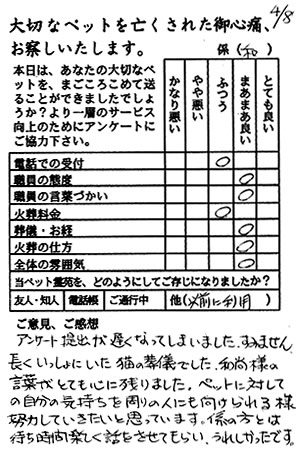 4/8
大切なペットを亡くされた御心痛、
お察しいたします。
係(和)
本日は、あなたの大切なペ
ットを、まごころこめて送
ることができましたでしょ
うか?より一層のサービス
向上のためにアンケートに
ご協力下さい。
かなり悪い
やや悪い
ふつう
まあまあ良い
とても良い
電話での受付 ○
職員の態度 ○
職員の言葉づかい ○
火葬料金 ○
葬儀・お経 ○
火葬の仕方 ○
全体の雰囲気 ○
当ペット霊苑を、どのようにしてご存じになりましたか?
友人・知人 電話帳 ご通行中 他(以前に利用)
ご意見、ご感想
アンケート提出が遅くなってしまいました。すみません。
長くいっしょにいた猫の葬儀でした。和尚様の
言葉がとても心に残りました。ペットに対して
の自分の気持ちを周りの人にも向けられる様
努力していきたいと思っています。係の方とは
待ち時間楽しく話をさせてもらい、うれしかったです。